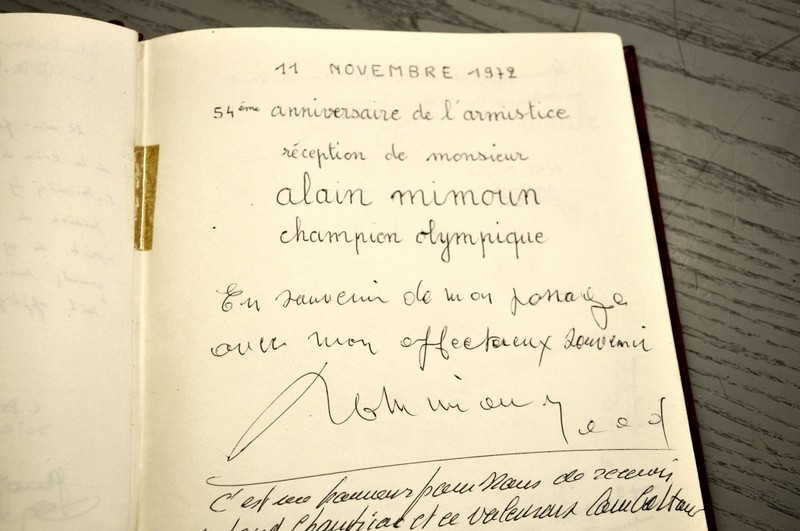 11 NOVEMBRE 1972
54ème anniversaire de l'armistice
réception de monsieur
alain mimoun
champion olympique
En souvenir de mon passage
avec mon affectueux souvenir
c'est un honneur pour nous de recevoir
grand champion et ce valeureux combattant